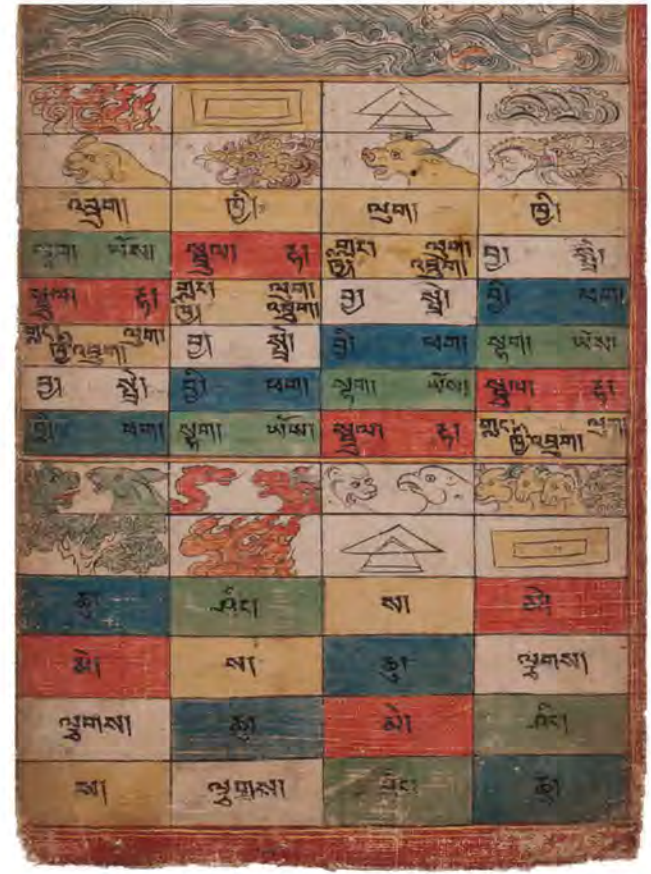 འབྲུག། ཁྱི། ལུག། ཁྱི།
སྟག། ཡོས། སྦྲུལ། རྟ། གླང་ ལུག། ཁྱི། འབྲུག། བྱ། སྤྲེ།
སྦྲུལ། རྟ། གླང་ ལུག། ཁྱི། འབྲུག། བྱ། སྤྲེ། བྱི། ཕག།
གླང་ ལུག། ཁྱི། འབྲུག། བྱ། སྤྲེ། བྱི། ཕག། སྟག། ཡོས།
བྱ། སྤྲེ། བྱི། ཕག། སྟག། ཡོས། སྦྲུལ། རྟ།
བྱི། ཕག། སྟག། ཡོས། སྦྲུལ། རྟ། གླང་ ལུག། ཁྱི། འབྲུག།
ཆུ། ཤིང། ས། མེ།
མེ། ས། ཆུ། ལྕགས།
ལྕགས། ཆུ། མེ། ཤིང།
ས། ལྕགས། ཤིང། ཆུ།